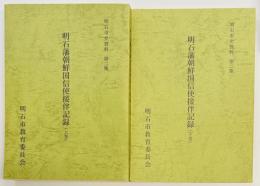 明石市史資料 第二集
明石藩朝鮮国信使接伴記録
明石市教育委員会
明石市史資料 第三集
明石藩朝鮮国信使接伴記録
明石市教育委員会